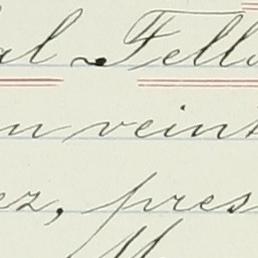 al Fell
n veint
ez, pres